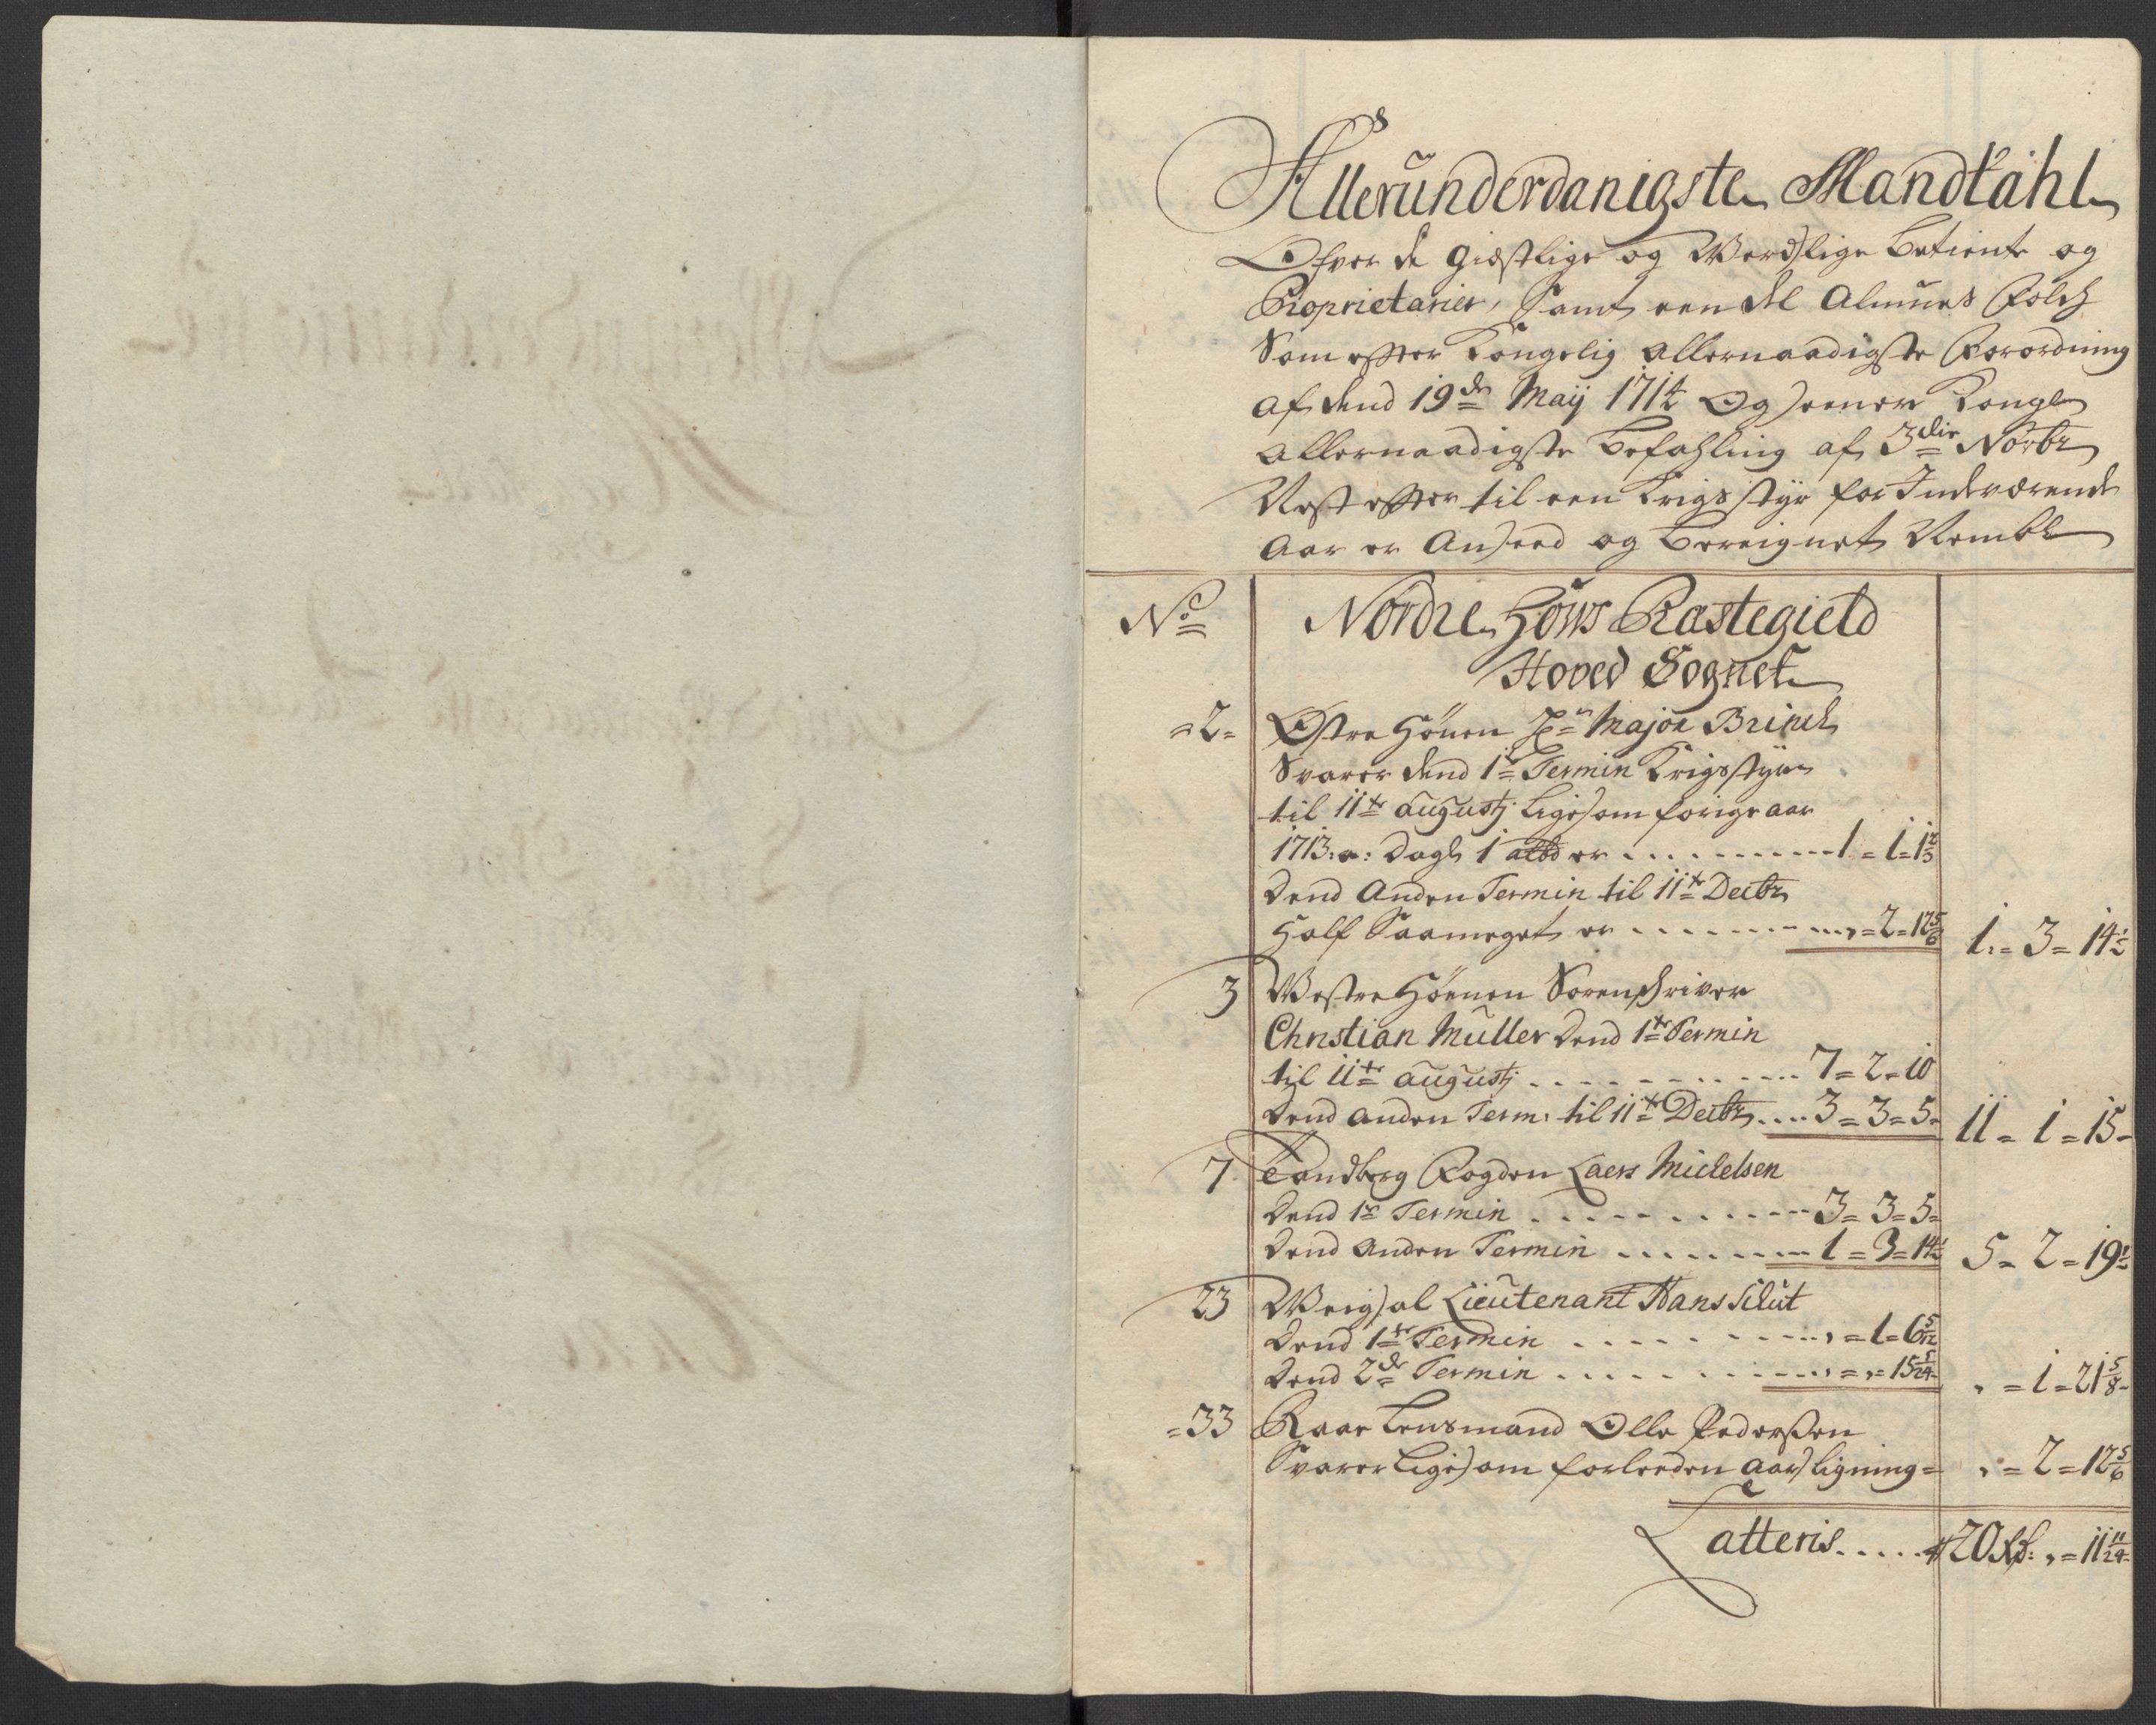 Allerunderdanigste Mandtahl
Ofver de Giestlige og Werdslige Betiente og
Proprietarier, Samt een del Almues Folch
Som efter Kongelig allernaadigste Forordning
af dend 19de Maij 1714 Og seenere Kongl
allernaadigste Befahling af 3die Novbr
Nest efter til een Krigsstyr for Indeværende
Aar er Anseed og Bereignet Nembl
No
Nordre Houws Prastegield
Hoved Sognet
=2= Østre Hönen Hr Major Brinch
Svarer dend 1te Termin Krigsstyr
til 11te Augustj Ligesom forige aar
1713: a: Dagl 1 er 1 = 1 = 1 2/3
Dend Anden Termin til 11te Decbr
Half Saameget er , = 2 = 12 5/6 1 = 3 = 14 1/2
3 Westre Höenen Sorenschriver
Christian Muller Dend 1te Termin
til 11te Augustj 7 = 2 = 10
Dend Anden Term: til 11te Decbr 3 = 3 = 5 = 11 = 1 = 15 =
7 Tandberg Fogden Laers Michelsen
Dend 1te Termin 3 = 3 = 5 =
Dend Anden Termin 1 = 3 = 14 1/2 5 = 2 = 19 1/2
23 Weigsal Lieutenant Hans Schut
Dend 1te Termin , = 1 = 6 5/12
Dend 2de Termin , = , = 15 5/24 , = 1 = 21 5/8 =
=33 Raae Lensmand Olle Pederßen
Svarer Ligesom forleeden Aars ligning = , = 2 = 12 5/6
Latteris 20 Rd: , = 11 11/24